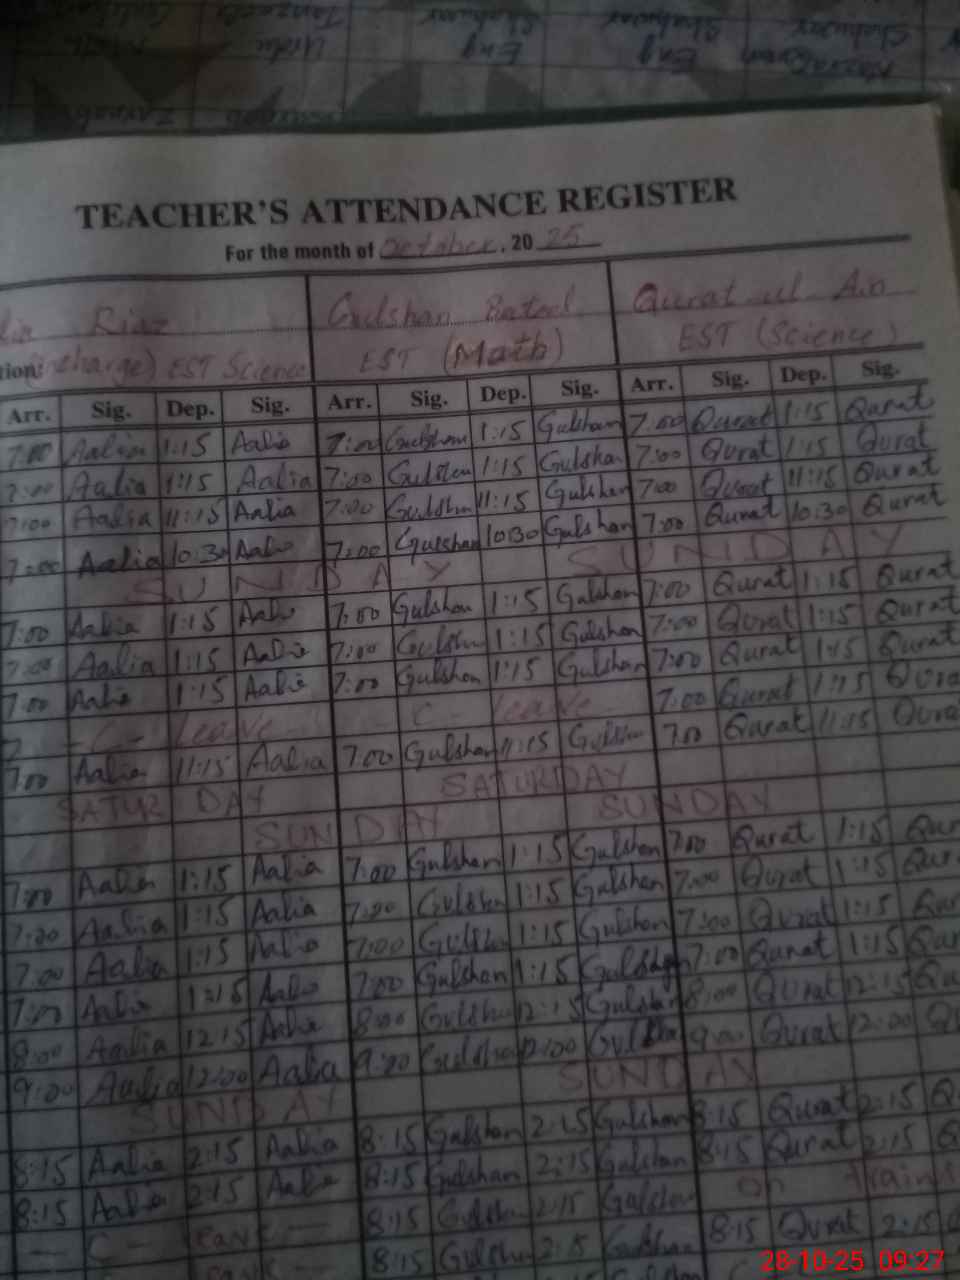 TEACHER'S ATTENDANCE REGISTER
For the month of October, 20 25
Riaz Gulshan Batool Qurat ul Ain
(incharge) EST Science EST (Math) EST (Science)
Arr. Sig. Dep. Sig. Arr. Sig. Dep. Sig. Arr. Sig. Dep. Sig.
7:00 Aalia 1:15 Aalia 7:00 Gulshan 1:15 Gulshan 7:00 Qurat 1:15 Qurat
7:00 Aalia 1:15 Aalia 7:00 Gulshan 1:15 Gulshan 7:00 Qurat 1:15 Qurat
7:00 Aalia 11:15 Aalia 7:00 Gulshan 11:15 Gulshan 7:00 Qurat 11:15 Qurat
7:00 Aalia 10:30 Aalia 7:00 Gulshan 10:30 Gulshan 7:00 Qurat 10:30 Qurat
SUNDAY SUNDAY
7:00 Aalia 1:15 Aalia 7:00 Gulshan 1:15 Gulshan 7:00 Qurat 1:15 Qurat
7:00 Aalia 1:15 Aalia 7:00 Gulshan 1:15 Gulshan 7:00 Qurat 1:15 Qurat
7:00 Aalia 1:15 Aalia 7:00 Gulshan 1:15 Gulshan 7:00 Qurat 1:15 Qurat
- C - leave C - leave 7:00 Qurat 1:15
7:00 Aalia 11:15 Aalia 7:00 Gulshan 11:15 Gulshan 7:00 Qurat 11:15
SATURDAY SATURDAY
SUNDAY SUNDAY
7:00 Aalia 1:15 Aalia 7:00 Gulshan 1:15 Gulshan 7:00 Qurat 1:15
7:00 Aalia 1:15 Aalia 7:00 Gulshan 1:15 Gulshan 7:00 Qurat 1:15
7:00 Aalia 1:15 Aalia 7:00 Gulshan 1:15 Gulshan 7:00 Qurat 1:15
7:00 Aalia 1:15 Aalia 7:00 Gulshan 1:15 Gulshan 7:00 Qurat 1:15
8:00 Aalia 12:15 Aalia 8:00 Gulshan 12:15 Gulshan 8:00 Qurat 12:15
9:00 Aalia 12:00 Aalia 9:00 Gulshan 12:00 Gulshan Qurat 12:00
SUNDAY SUNDAY
8:15 Aalia 2:15 Aalia 8:15 Gulshan 2:15 Gulshan 8:15 Qurat 2:15
8:15 Aalia 2:15 Aalia 8:15 Gulshan 2:15 Gulshan 8:15 Qurat 2:15
- C - leave - 8:15 Gulshan 2:15 Gulshan on
8:15 Gulshan 2:15 Gulshan 8:15 Qurat 2:15
28-10-25 09:27